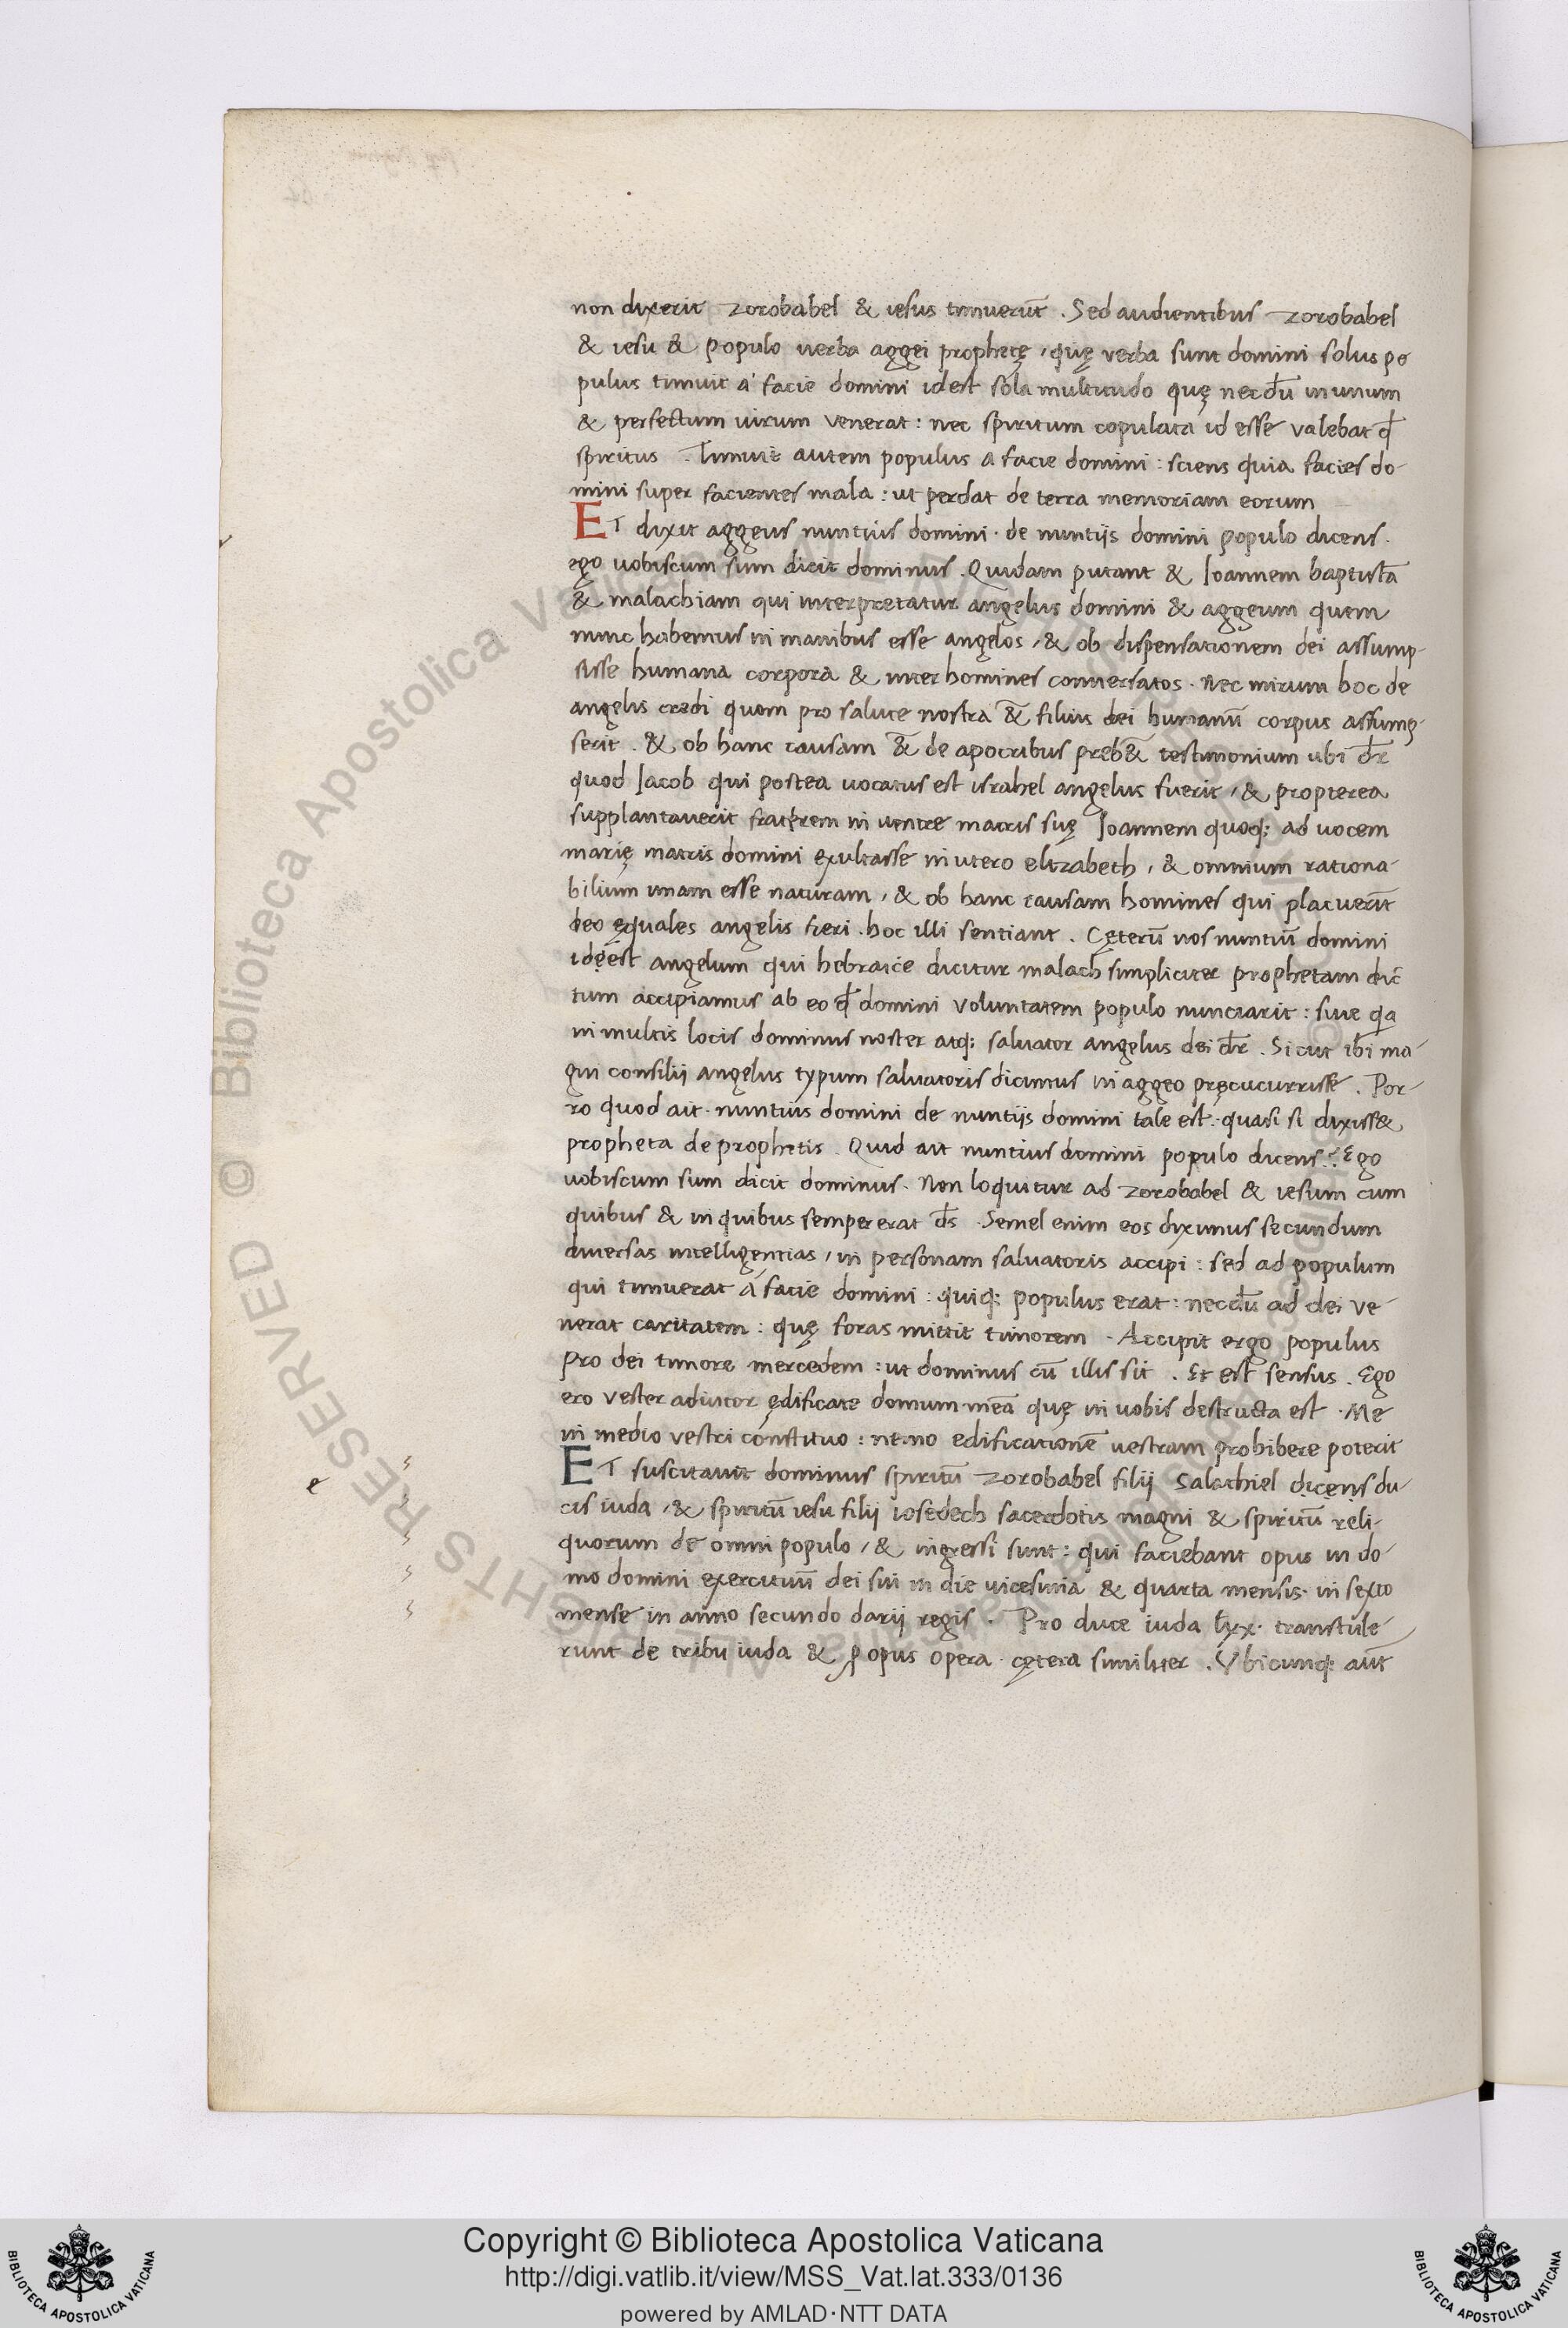 non dixerit zorobabel & iesus timuerūt . Sed audientibus zorobabel
& iesu & populo uerba aggei prophetę , quę verba sunt domini solus po
pulus timuit a' facie domini idest sola multitudo quę necdū in unum
& perfectum uirum venerat : nec spiritum copulata id esse valebat qđ
spiritus . Timuit autem populus a facie domini : sciens quia facies do-
mini super facientes mala : ut perdat de terra memoriam eorum
ET dixit aggeus nuntius domini · de nuntijs domini populo dicens .
ego uobiscum sum dicit dominus . Quidam putant & Ioannem baptistā
& malachiam qui interpretatur angelus domini & aggeum quem
nunc habemus in manibus esse angelos , & ob dispensationem dei assump-
sisse humana corpora & inter homines conuersatos . nec mirum hoc de
angelis credi quom pro salute nostra &̄ filius dei humanū corpus assump-
serit . & ob hanc causam &̄ de apocribus preb&̄ testimonium ubi dr̄
quod Iacob qui postea uocatus est israhel angelus fuerit , & propterea
supplantauerit fratrem in ventre matris suę Ioannem quoq; ad uocem
marię matris domini exultasse in utero elizabeth , & omnium rationa-
bilium unam esse naturam , & ob hanc causam homines qui placuerūt
deo ęquales angelis fieri . hoc illi sentiant . Cęterū nos nuntiū domini
idẹest angelum qui hebraice dicitur malach simpliciter prophetam dic̄
tum accipiamus ab eo qđ domini voluntatem populo nunciarit : siue qa
in multis locis dominus noster atq; saluator angelus dei dr̄ . Sicut ibi ma-
gni consilij angelus typum saluatoris dicimus in aggeo pręcucurrisse . Por-
ro quod ait · nuntius domini de nuntijs domini tale est . quasi si dixiss&
propheta de prophetis . Quid ait nuntius domini populo dicens ? Ego
uobiscum sum dicit dominus . Non loquitur ad zorobabel & iesum cum
quibus & in quibus semper erat ds̄ . Semel enim eos diximus secundum
diuersas intelligentias , in personam saluatoris accipi : sed ad populum
qui timuerat a' facie domini : quiq; populus erat : necdū ad dei ve-
nerat caritatem : quę foras mittit timorem . Accipit ergo populus
pro dei timore mercedem : ut dominus cū illis sit . Et est sensus . Ego
ero vester adiutor ędificate domum meā quę in uobis destructa est . Me
in medio vestri constituo : nemo edificationē uestram prohibere poterit
ET suscitauit dominus spiritū zorobabel filij Salathiel dicens du-
cis iuda , & spiritū iesu filij iosedech sacerdotis magni & spiritū reli-
quorum de omni populo , & ingressi sunt : qui faciebant opus in do-
mo domini exercituū dei sui in die uicesima & quarta mensis · in sexto
mense in anno secundo darij regis . Pro duce iuda lxx · transtule-
runt de tribu iuda & ꝓ opus opera · cętera similiter . Vbicunq; aut̄
e
© Biblioteca Apostolica Vaticana ALL RIGHTS RESERVED
Copyright © Biblioteca Apostolica Vaticana
http://digi.vatlib.it/view/MSS_Vat.lat.333/0136
powered by AMLAD·NTT DATA
BIBLIOTECA APOSTOLICA VATICANA
BIBLIOTECA APOSTOLICA VATICANA